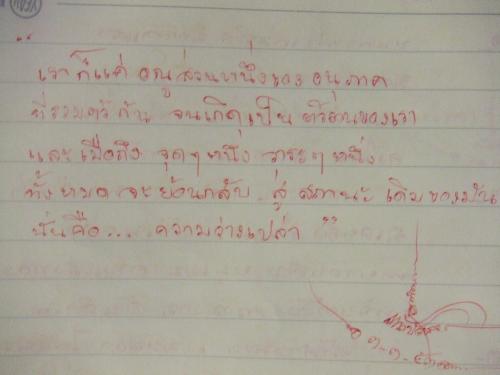 "
เราก็แค่ อณูส่วนหนึ่งของ อนุภาค
ที่รวมตัวกัน จนเกิดเป็น ตัวตนของเรา
และเมื่อถึง จุดๆหนึ่ง วาระๆหนึ่ง
ทั้งหมด จะย้อนกลับ สู่ สถานะ เดิมของมัน
นั่นคือ... ความว่างเปล่า "